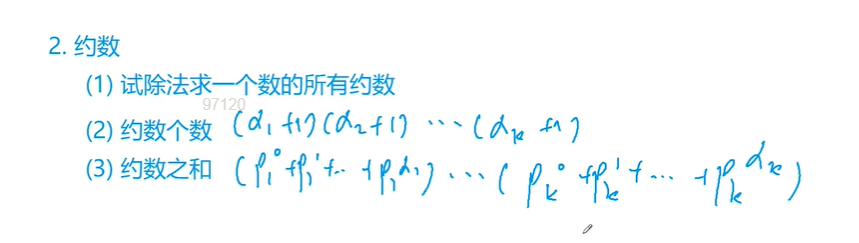 2. 约数
(1) 试除法求一个数的所有约数
97120
(2) 约数个数 (α₁+1)(α₂+1)⋯(αₖ+1)
(3) 约数之和 (p₁⁰+p₁¹+⋯+p₁^α₁)⋯(pₖ⁰+pₖ¹+⋯+pₖ^αₖ)